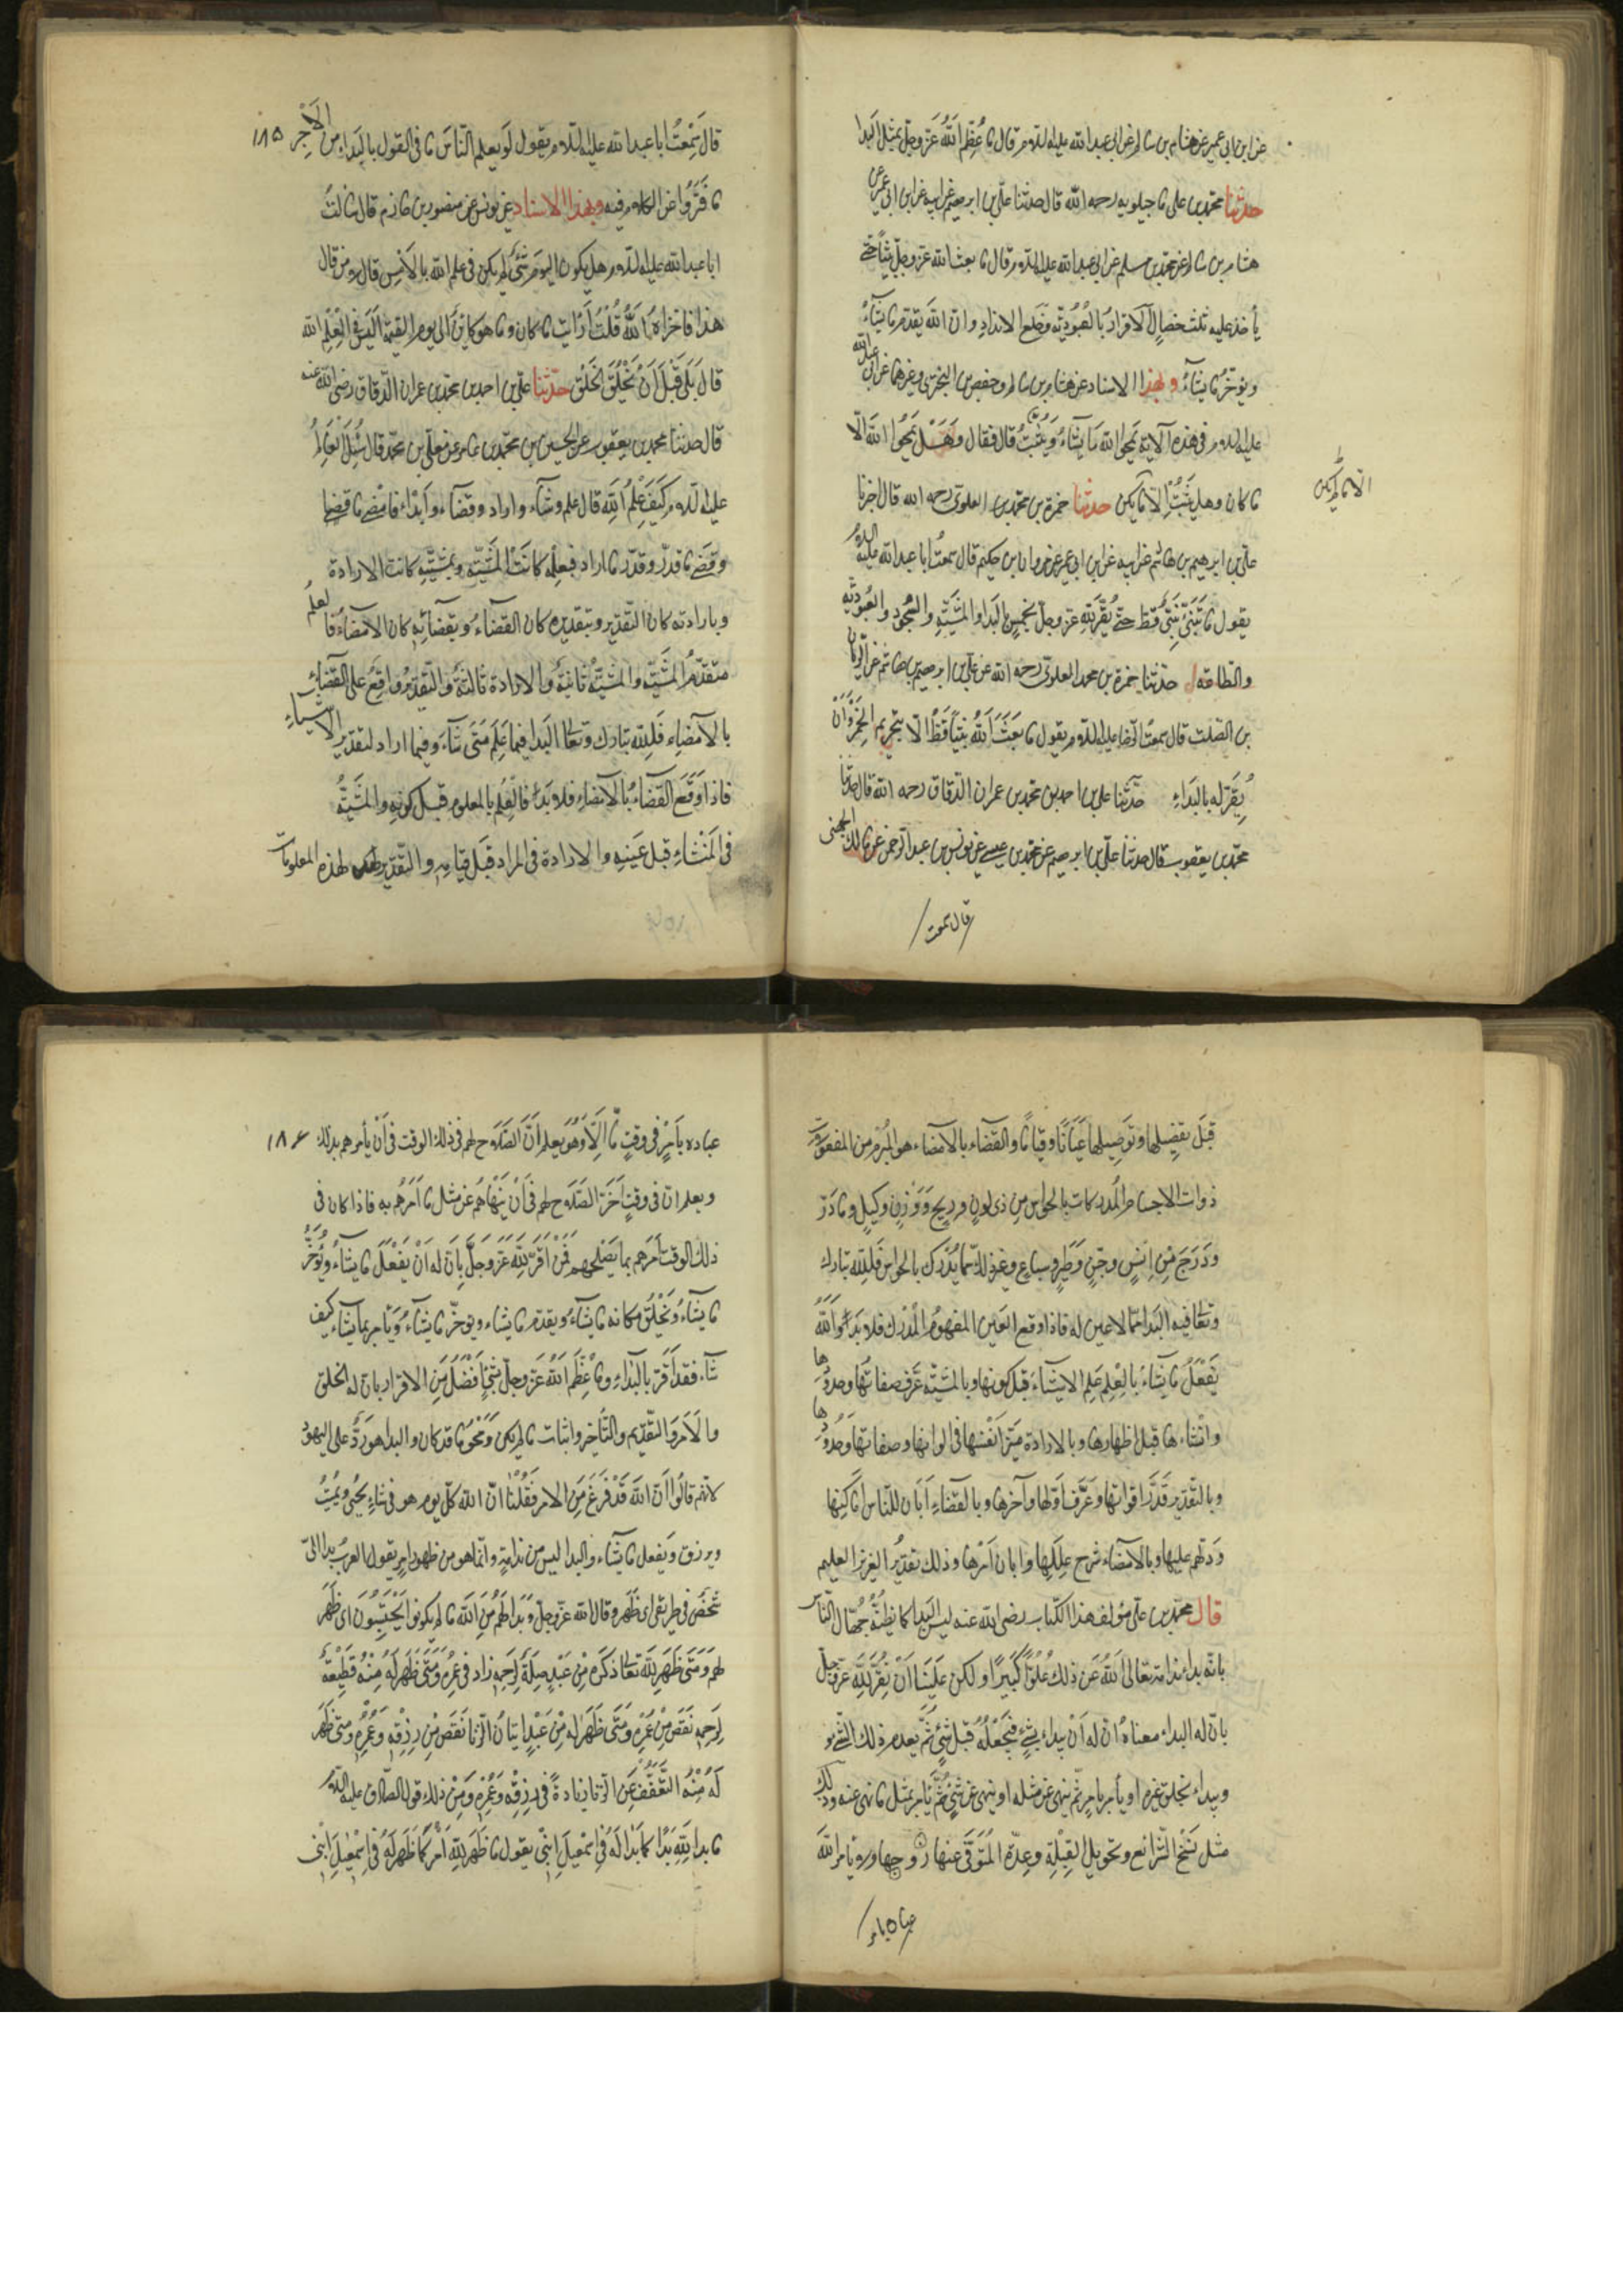 عن ابن ابی عمیر عن هشام بن سالم عن ابی عبد الله علیه السلام قال ما عُظِّمَ اللهُ عَزَّ وجلّ بمثل البَدا
حدثنا محمّد بن علی ماجیلویه رحمه الله قال حدثنا علیّ بن ابرهیم عن ابیه عن ابن ابی عمیر عن
هشام بن سالم عن محمّد بن مسلم عن ابی عبد الله علیه السلام قال ما بعث الله عزّ وجلّ نبیّاً حتّی
یأخذ علیه ثلث خصالٍ الاقرارُ بالعُبُودیّه وخَلع الاندادِ وانّ الله یقدّم ما یشآءُ
ویؤخّرُ ما یشآءُ وبهذا الاسناد عن هشام بن سالم وحفص بن البختری وغیرهما عن ابی عبد الله
علیه السلام فی هذه الآیة یَمحُوا الله مَا یَشاءُ وَیُثبِتُ قال فقال وهَلْ یَمحُوا الله الّا
ما کان وهل یُثبِتُ الّا ما لم یکن حدثنا حمزة بن محمّد بن العلوی رحمه الله قال اخبرنا
الا ما لم یکن
علیّ بن ابرهیم بن هاشم عن ابیه عن ابن ابی عمیر عن مروان بن حکیم قال سمعتُ ابا عبد الله علیه السلام
یقول ما تَنَبّیَٔ نَبیٌّ قَطّ حتّی یُقِرَّ لِلّهِ عزّ وجلّ بخمسٍ البَدا والمَشیَّةِ والسُّجُودِ والعُبُودیّةِ
والطّاعة حدّثنا حمزة بن محمد العلوی رحمه الله عن علیّ بن ابرهیم بن هاشم عن الرّیان
بن الصّلت قال سمعتُ الرّضا علیه السلام یقول ما بَعَثَ اللهُ نبیّاً قطُّ الّا بتحریم الخَمرِ وَاَنْ
یُقِرَّ له بالبَداءِ حدّثنا علی بن احمد بن محمّد بن عمران الدّقاق رحمه الله قال حدثنا
محمّد بن یعقوب قال حدثنا علیّ بن ابرهیم عن محمّد بن عیسی عن یونس بن عبد الرحمن عن مالک الجهنی
قال سمعت
قالَ سَمِعْتُ ابا عبد الله علیه السّلام یقول لَو یعلم النّاسُ ما فی القول بالبَداءِ من الاَجرِ ١٨٥
ما فَتَرُوا عن الکلام فیه وبهذا الاسناد عن یونس عن منصور بن حازم قال سالتُ
ابا عبد الله علیه السلام هل یکون الیومَ شَیٌٔ لم یکن فی علم الله بالاَمس قال لا من قال
هذا فاخزاهُ اللهُ قُلتُ اَرَاَیتَ ما کان وما هو کاینٌ الی یوم القیمة اَلَیسَ فی عِلْمِ الله
قالَ بَلی قَبْلَ اَنْ یَخْلُقَ الخَلْقَ حدّثنا علیّ بن احمد بن محمّد بن عمران الدّقاق رضی الله عنه
قال حدثنا محمد بن یعقوب عن الحسین بن محمّد بن عامر عن معلّی بن محمّد قال سُئِلَ العَالِمُ
علیه السلام کَیفَ عِلْمُ اللهِ قال علم وشآء واراد وقضآء وابداء فامضی ما قضی
وقضی ما قدّر وقدّر ما اراد فبعلمه کانَت المَشیّة وبمشیّتِه کانت الارادة
وبارادته کان التّقدیر وبتقدیره کان القضآءُ وبقضآئِهِ کان الامضآءُ فالعلمُ
متقدّمُ المَشیّةَ والمَشیّةُ ثانیةٌ والارادة ثالثةٌ والتّقدیرُ واقِعٌ علی القضآءِ
بالاَمضاءِ فَلِلّه تبارک وتعالی البَدا فیما عَلِمَ مَتی شآءَ وفیما اراد لتقدیر الاشیاءِ
فاذا وَقَعَ القضآءُ بالامضاءِ فلا بَداءَ فالعِلْم بالمعلوم قبل کونهِ والمَشیّةُ
فی المَنْشاءِ قبل عَینِهِ والارادة فی المراد قَبلَ قیامِهِ والتّقدیر لهذه المعلومات
قَبلَ تفصیلها وتَوصِیلها عَیَاناً وقیاماً والقضاء بالامضاء هو المُبْرَم من المفعولات
ذوات الاجسام المُدرکات بالحواس مِن ذی لون وریحٍ وَوَزنٍ وکیلٍ وما دَبّ
ودَرَجَ مِن اِنسٍ وجنٍّ وَطَیرٍ وسباعٍ وغیر ذلک ممّا یُدرَک بالحواس فَلِلّه تبارک
وتعالی فیه البَدا ممّا لا عین له فاذا وقع العَین المفهومُ المُدْرَک فلا بَداءَ واللهُ
یَفعَلُ ما یَشاءُ بالعِلْمِ عَلِمَ الاشیاءَ قبل کونها وبالمَشیّة عَرَف صفاتِها وحدودها
وانْشاءها قبل اظهارها وبالارادة مَیّزَ اَنْفُسَها فی الوانها وصفاتها وحدودها
وبالتّقدیر قَدَّرَ اقواتها وعَرَّفَ اَوّلها وآخرها وبالقضاءِ اَبَان للنّاس اماکِنها
ودَلّهم علیها وبالامضآء شرح عِلَلِها وابان اَمْرَها وذلک تقدیرُ العزیز العلیم
قال محمّد بن علیّ مؤلف هذا الکتاب رضی الله عنه لیسَ البَدا کما یَظُنُّهُ جُهّال النّاس
بانّه بداء ندامة تعالی اللهُ عَن ذلک عُلُوّاً کَبیراً ولکن عَلَینا اَنْ نُقِرَّ لِلّهِ عزّ وجلّ
بانّ له البداء معناهُ انّ له اَنْ یبداء بشیءٍ فَیَجعَلُهُ قبل شَیءٍ ثُمَّ یعدم ذلک الشیء
ویبداء بخلق غیره او یأمر بامرٍ ثم ینهی عن مثله او ینهی عن شَیءٍ ثُمَّ یأمر بمثل ما نهی عنه وذلک
مثل نَسْخ الشّرائع وتحویل القِبْلَةِ وعِدّة المُتَوفّی عنها زوجها ولا یأمر اللهُ
عباده بامر
عباده بِاَمْرٍ فی وقتٍ ما اِلّا وهُوَ یعلم اَنّ الصّلاح لهم فی ذلک الوقت فی اَنْ یأمرهم بذلک ١٨۶
ویعلم انّ فی وقتٍ آخَرَ الصّلاح لهم فی اَنْ یَنْهاهُم عن مثل ما اَمَرَهُم به فاذا کان فی
ذلک الوقت اَمَرَهم بما یُصْلِحهم فَمَنْ اَقَرَّ لِلّهِ عَزَّ وَجَلَّ بِاَنّ له اَنْ یَفعَلَ ما یشاءُ ویُؤَخِّرُ
ما یشآءُ وَیَخْلُقُ مکانه ما یشآءُ ویقدّم ما یشاء ویؤخّر ما یشآءُ وَیَأمر بما یشآء کیف
شاء فقد اَقَرّ بالبَداءِ وما عُظِّمَ اللهُ عَزّ وجلّ بشیءٍ اَفْضَلَ مِن الاقرار بانّ له الخلق
والاَمرَ والتّقدیم والتّأخیر واثبات ما لم یکن ومَحْوَ ما قد کان والبدا هو رَدٌّ علی الیهود
لانّهم قالُوا اَنّ اللهَ قَدْ فَرَغَ مِنَ الامر فَقُلْنا انّ الله کلّ یوم هو فی شاءٍ یُحیی ویُمیتُ
ویرزق ویَفعل ما یشاء والبدا لیس من ندامةٍ وانّما هو من ظهور امرٍ یقول العربُ بدا لی
شخصٌ فی طریقی ای ظَهَرَ وقال الله عزّ وجلّ وَبَدا لَهُمْ مِنَ اللهِ ما لَم یَکُونوا یَحْتَسِبُونَ ای ظَهَرَ
لهم وَمَتی ظَهَرَ لِلّهِ تعالی ذکره مِنْ عَبْدٍ صِلَةٌ لِرَحِمِهِ زاد فی عُمُرِهِ وَمَتی ظَهَرَ لَهُ مِنْهُ قَطیعَةٌ
لِرَحِمِهِ نَقَصَ مِنْ عُمُرِهِ وَمَتی ظَهَرَ له مِنْ عَبْدٍ اِتیانُ الزّنا نَقَصَ مِنْ رِزْقِهِ وَعُمُرِهِ ومتی ظَهَرَ
لَهُ مِنْهُ التَّعَفُّفُ عَنِ الزّنا زیادةً فی رِزْقِهِ وَعُمُرِهِ وَمِنْ ذلک قول الصّادق علیه السّلام
ما بدا لِلّهِ بَدا کما بَدا لَهُ فی اِسْمعیلَ ابنی یقول ما ظَهَرَ لِلّهِ اَمْرٌ کما ظَهَرَ لَهُ فی اِسْمعیلَ ابْنی